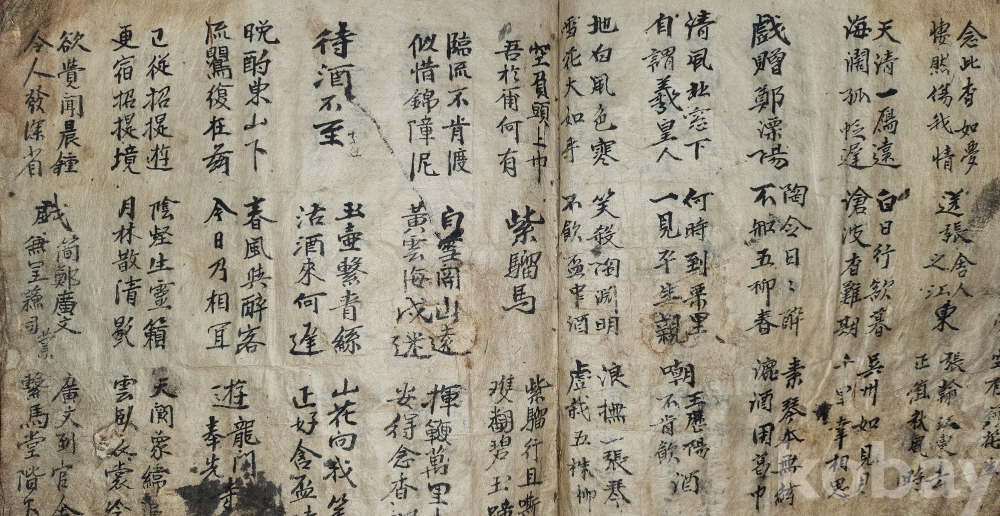 念此杳如夢
悽然傷我情
送張舍人之江東
張翰江東去
正値秋風時
天清一鴈遠
海闊孤帆遲
白日行欲暮
滄波杳難期
吳州如見月
千里幸相思
戲贈鄭溧陽
陶令日〻醉
不知五柳春
素琴本無絃
漉酒用葛巾
清風北窓下
自謂羲皇人
何時到栗里
一見平生親
嘲王歷陽不肯飲酒
地白風色寒
雪花大如手
笑殺陶淵明
不飲盃中酒
浪撫一張琴
虛栽五株柳
空負頭上巾
吾於爾何有
紫騮馬
紫騮行且嘶
雙翻碧玉蹄
臨流不肯渡
似惜錦障泥
白雪關山遠
黃雲海戍迷
揮鞭萬里
安得念香
待酒不至
玉壺繫青絲
沽酒來何遲
山花向我笑
正好含盃
晩酌東山下
流鶯復在玆
春風與醉客
今日乃相宜
遊龍門奉先寺
已從招提遊
更宿招提境
陰壑生靈籟
月林散清影
天闕象緯逼
雲臥衣裳冷
欲覺聞晨鍾
令人發深省
戱簡鄭廣文兼呈蘇司業
廣文到官舍
繫馬堂階下
kobay